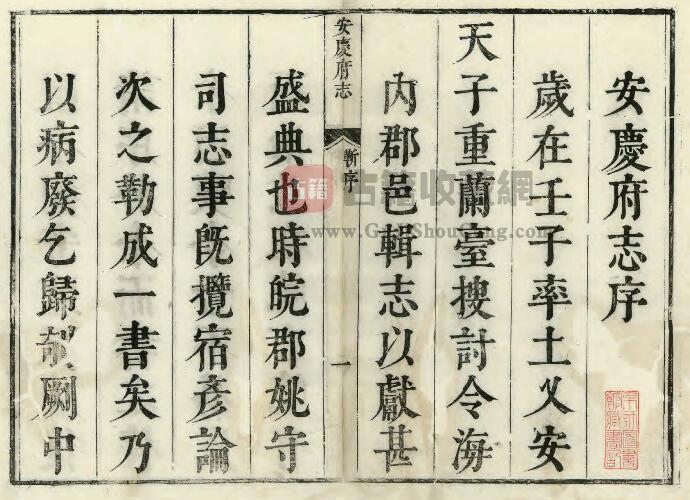 安慶府志序
歲在壬子率土乂安
天子重蘭臺搜討令海
內郡邑輯志以獻甚
安慶府志
靳序
一
盛典也時皖郡姚守
司志事旣攬宿彥論
次之勒成一書矣乃
以病廢乞歸剞劂中
古籍
古籍收藏網